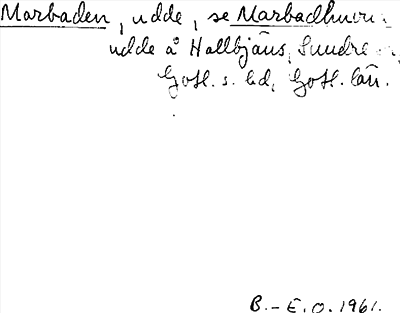 Marbaden, udde, se
udde å Hallbjäns, Sundre
Gotl. s. hd, Gotl. län.
B.-E.O. 1961.